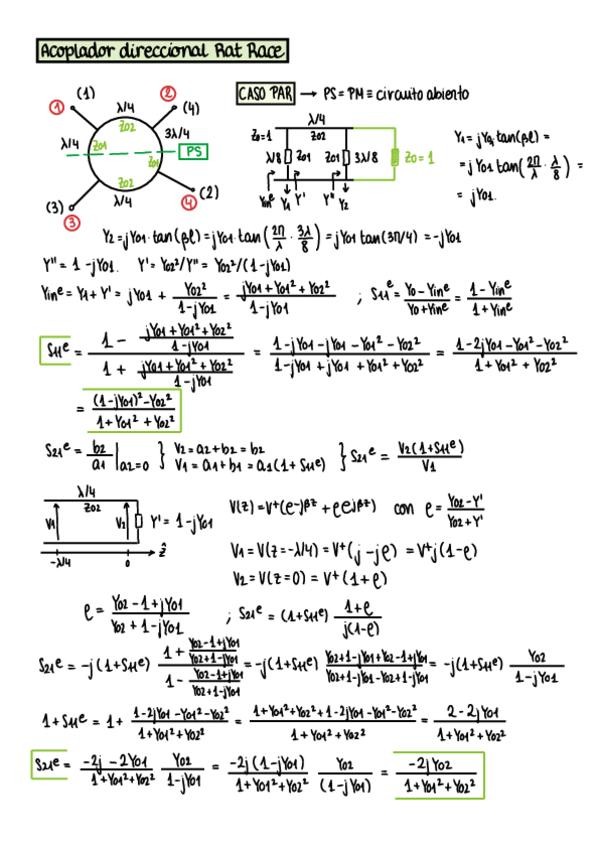 Acoplador direccional Rat Race
(1) λ/4 ② (4)
① Z02 3λ/4
λ/4 Z01 Z01 PS
(3) Z02 λ/4 (2)
③ ④
CASO PAR → PS = PM ≡ circuito abierto
λ/4
Z0=1 Z02
λ/8 Z01 Z01 3λ/8 Z0=1
Yine Y1 Y' Y'' Y2
Y1 = jY01 tan(βl) =
= jY01 tan(2π/λ · λ/8) =
= jY01.
Y2 = jY01·tan(βl) = jY01·tan(2π/λ · 3λ/8) = jY01 tan(3π/4) = -jY01
Y'' = 1 - jY01. Y' = Y02²/Y'' = Y02²/(1-jY01)
Yine = Y1 + Y' = jY01 + Y02²/(1-jY01) = (jY01 + Y01² + Y02²)/(1-jY01) ; S11e = (Y0 - Yine)/(Y0 + Yine) = (1 - Yine)/(1 + Yine)
S11e = (1 - (jY01 + Y01² + Y02²)/(1-jY01))/(1 + (jY01 + Y01² + Y02²)/(1-jY01)) = (1 - jY01 - jY01 - Y01² - Y02²)/(1 - jY01 + jY01 + Y01² + Y02²) = (1 - 2jY01 - Y01² - Y02²)/(1 + Y01² + Y02²)
= ((1-jY01)² - Y02²)/(1 + Y01² + Y02²)
S21e = b2/a1 |a2=0 } V2 = a2 + b2 = b2
V1 = a1 + b1 = a1(1 + S11e) } S21e = V2(1+S11e)/V1
λ/4
Z02
V1 V2 Y' = 1 - jY01
-λ/4 0 ẑ
V(z) = V⁺(e-jβz + ρejβz) con ρ = (Y02 - Y')/(Y02 + Y')
V1 = V(z=-λ/4) = V⁺(j - jρ) = V⁺j(1-ρ)
V2 = V(z=0) = V⁺(1+ρ)
ρ = (Y02 - 1 + jY01)/(Y02 + 1 - jY01) ; S21e = (1+S11e) (1+ρ)/(j(1-ρ))
S21e = -j(1+S11e) (1 + (Y02-1+jY01)/(Y02+1-jY01))/(1 - (Y02-1+jY01)/(Y02+1-jY01)) = -j(1+S11e) (Y02+1-jY01+Y02-1+jY01)/(Y02+1-jY01-Y02+1-jY01) = -j(1+S11e) Y02/(1-jY01)
1 + S11e = 1 + (1-2jY01-Y01²-Y02²)/(1+Y01²+Y02²) = (1+Y01²+Y02²+1-2jY01-Y01²-Y02²)/(1+Y01²+Y02²) = (2-2jY01)/(1+Y01²+Y02²)
S21e = (-2j-2Y01)/(1+Y01²+Y02²) Y02/(1-jY01) = (-2j(1-jY01))/(1+Y01²+Y02²) Y02/(1-jY01) = (-2jY02)/(1+Y01²+Y02²)